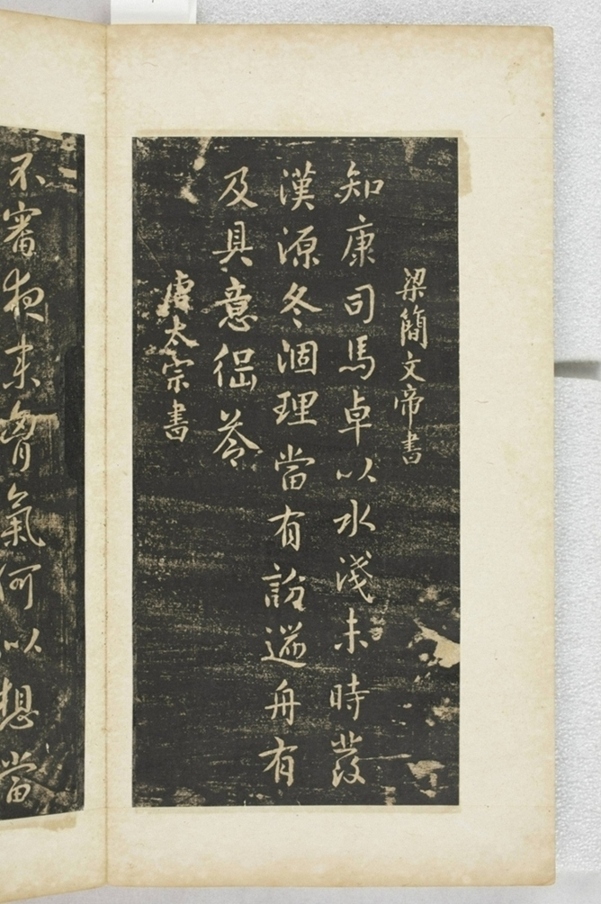 梁簡文帝書
知康司馬卓以水淺未時發
漢源冬涸理當有遄舟有
及具意
唐太宗書
不審夜来胷氣何以想當